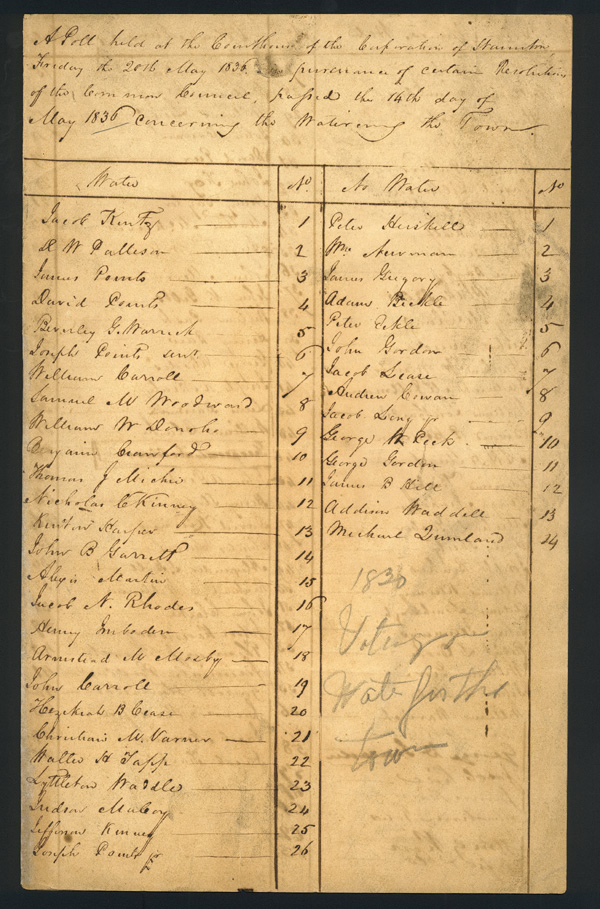 A Poll held at the Courthouse of the Corporation of Staunton
Friday the 20th May 1836 in pursuance of certain Resolutions
of the Common Council, passed the 14th day of
May 1836 concerning the Watering the Town.
Water No. No Water No
Jacob Kurtz 1 Peter Heiskell 1
R W Patteson 2 Wm Newman 2
James Points 3 James Gregory 3
David Points 4 Adam Bickle 4
Beverley G. Warrick 5 Peter Eckle 5
Joseph Points senr 6 John Gordon 6
William Carroll 7 Jacob Lease 7
Samuel M Woodward 8 Andrew Cowan 8
William W Donoho 9 Jacob Long jr 9
Crawford 10 George M Peck 10
Thomas J Michie 11 George Gordon 11
Nicholas C Kinney 12 James B Hill 12
Kenton Harper 13 Addison Waddell 13
John B Garrett 14 Michael Quinland 14
Alexis Martin 15
Jacob N. Rhodes 16
Henry Imboden 17
Armstead M Mosby 18
John Carroll 19
Hezekiah B Cease 20
Christian M. Varner 21
Walter H Tapp 22
Lyttleton Waddle 23
Judson 24
Jefferson Kinney 25
Joseph Points jr 26
1830
Voting
Water for the
town